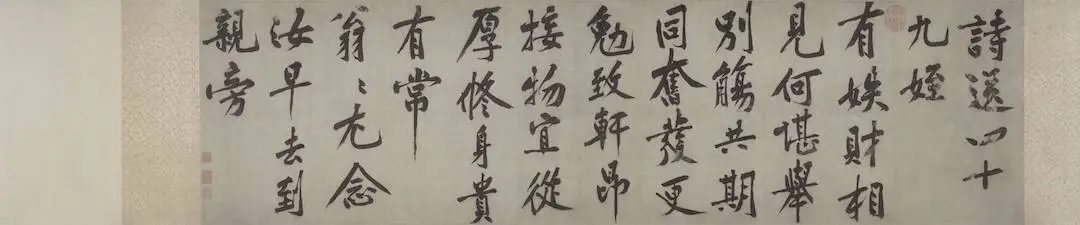 詩送四十
九姪
有娛財相
見何堪舉
別觴共期
同奮發更
勉致軒昂
接物宜從
厚修身貴
有常
翁〻尤念
汝早去到
親旁